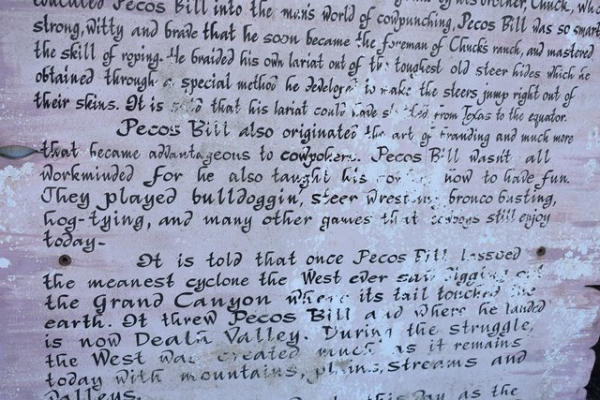 educated Pecos Bill into the man's world of cowpunching, Pecos Bill was so smart
strong, witty and brave that he soon became the foreman of Chuck's ranch, and mastered
the skill of roping. He braided his own lariat out of the toughest old steer hides which he
obtained through a special method he developed to make the steers jump right out of
their skins. It is said that his lariat could have stretched from Texas to the equator.
Pecos Bill also originated the art of branding and much more
that became advantageous to cowpokers. Pecos Bill wasn't all
workminded for he also taught his how to have fun.
They played bulldoggin, steer wrestling, bronco busting,
hog-tying, and many other games that cowboys still enjoy
today-
It is told that once Pecos Bill lassoed
the meanest cyclone the West ever saw digging out
the Grand Canyon where its tail touched the
earth. It threw Pecos Bill and where he landed
is now Death Valley. During the struggle,
the West was created much as it remains
today with mountains, plains, streams and
valleys.
this day as the